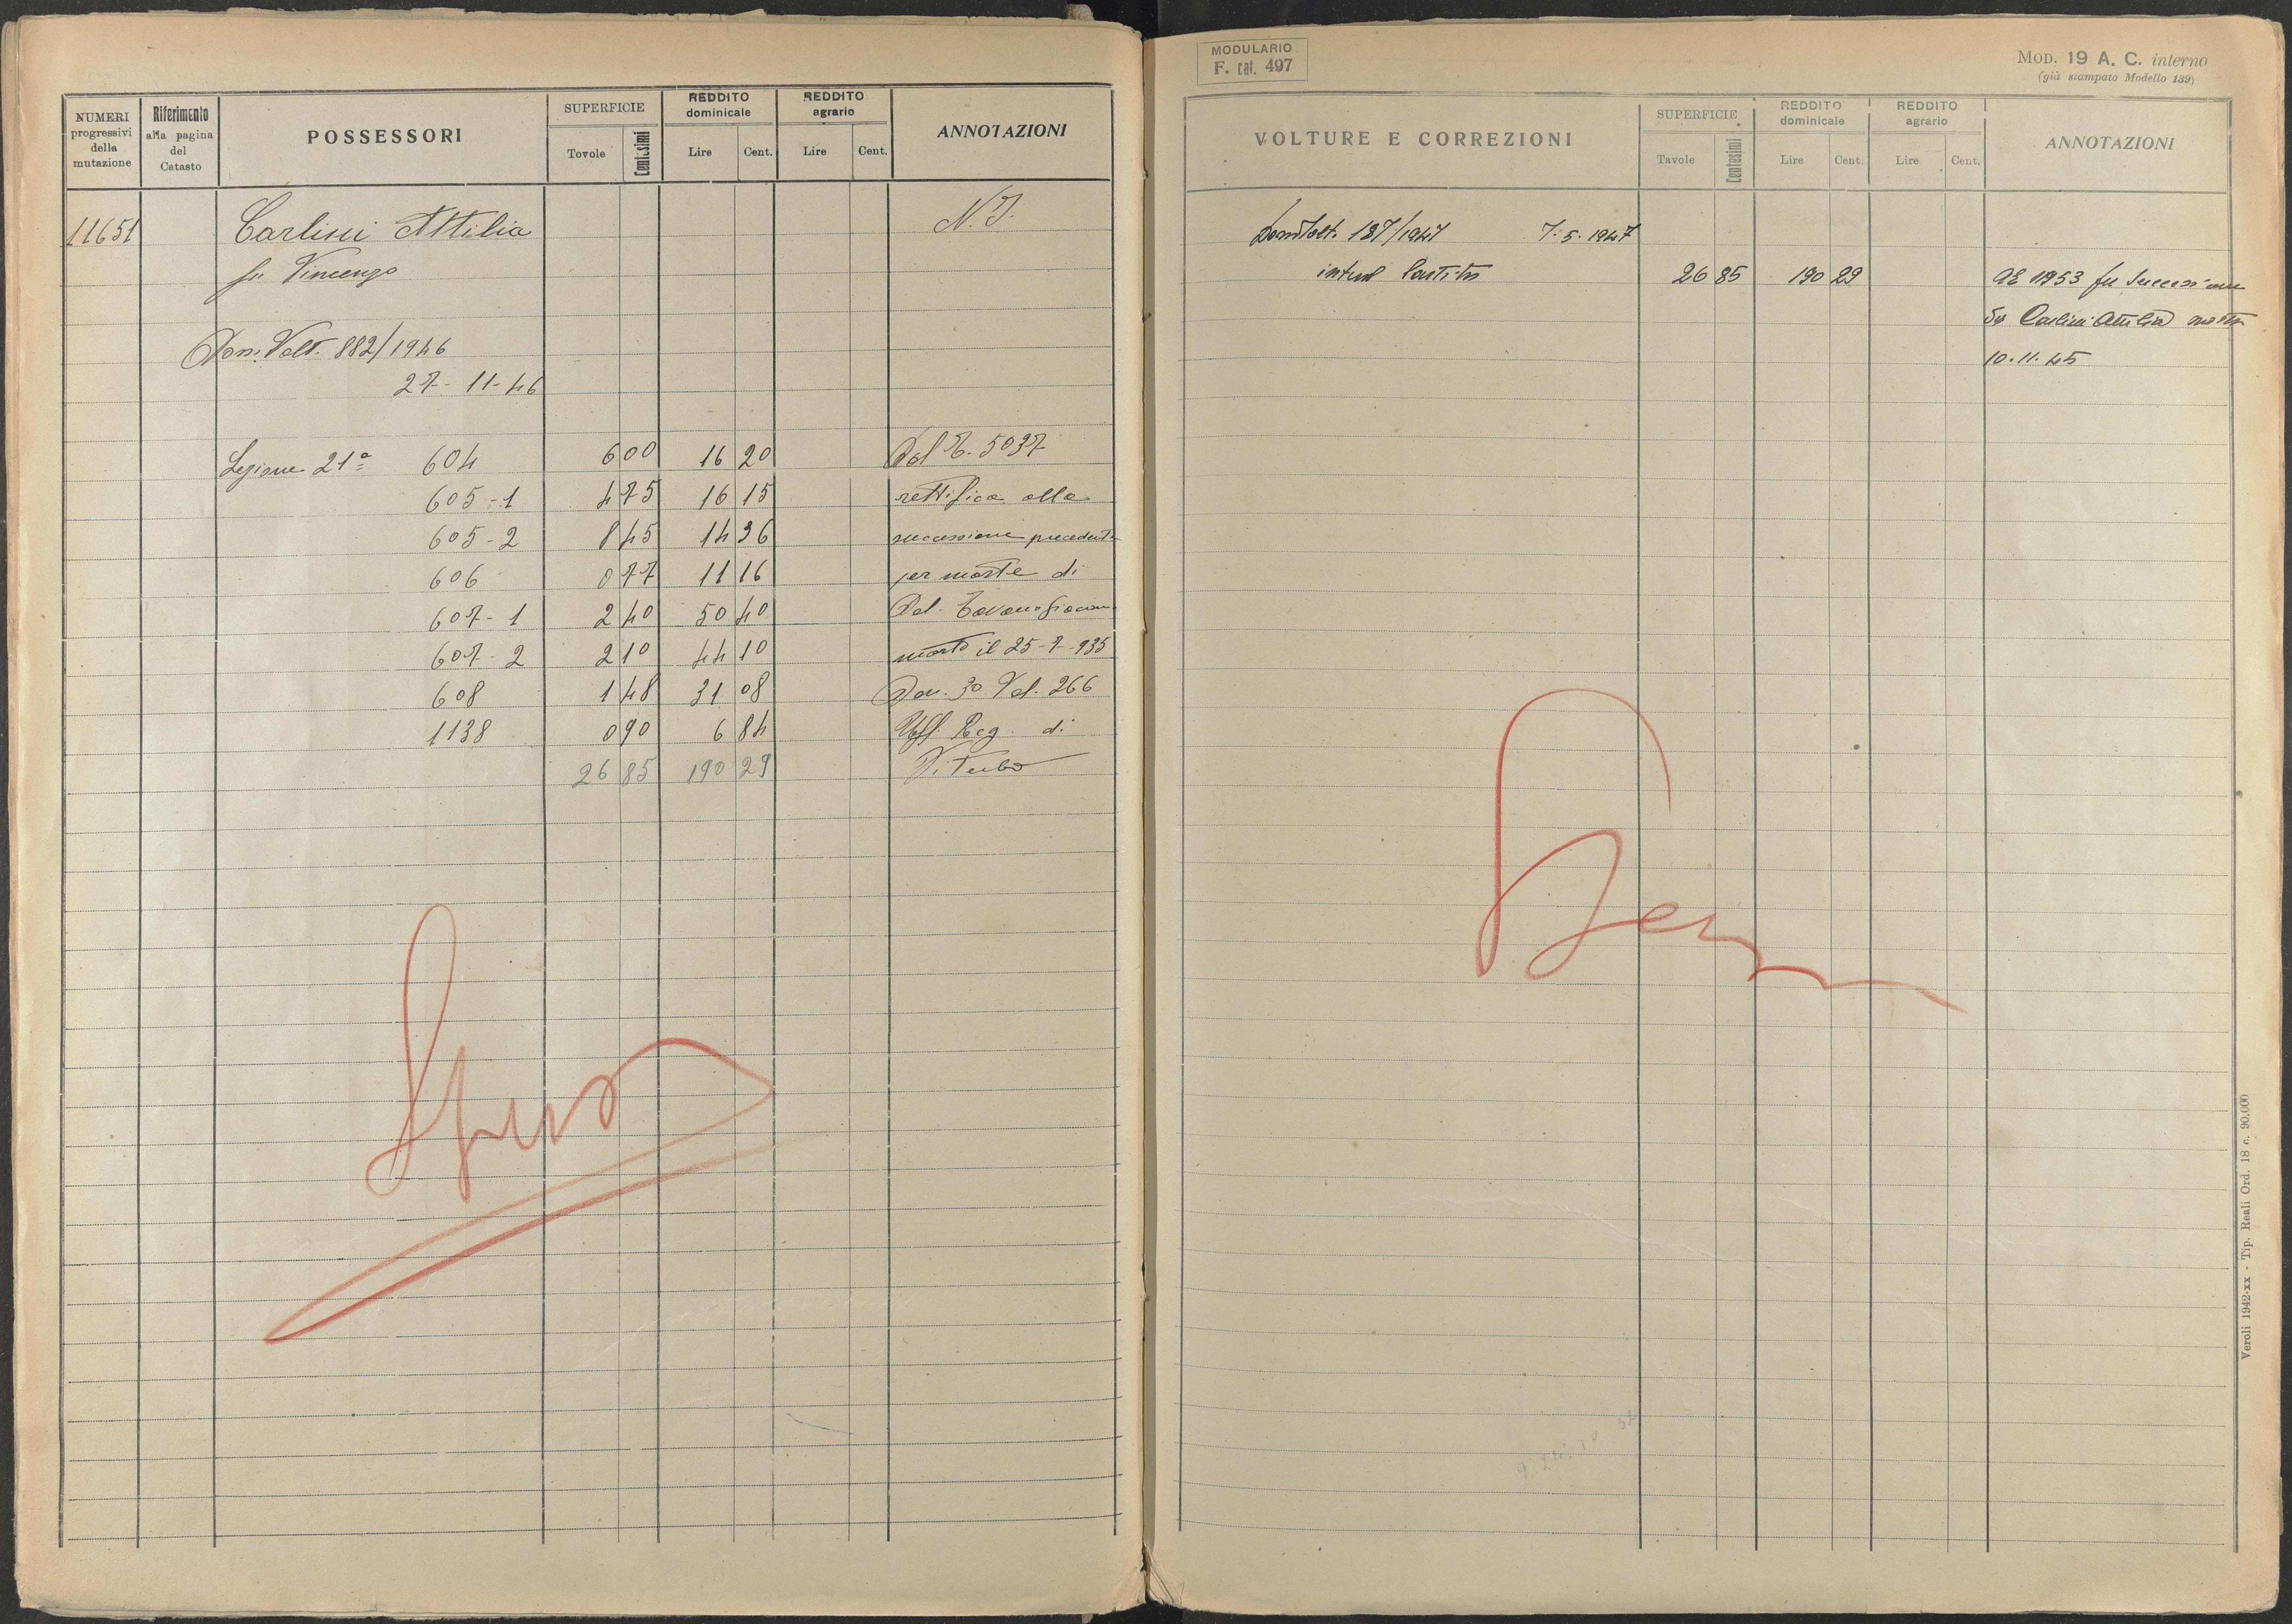 NUMERI progressivi della mutazione
Riferimento alla pagina del Catasto
POSSESSORI
SUPERFICIE
Tavole
Centesimi
REDDITO dominicale
Lire
Cent.
REDDITO agrario
Lire
Cent.
ANNOTAZIONI
11651
Carlini Attilia
N. I.
fu Vincenzo
Dom. Volt. 882/1946
27-11-46
Sezione 21ª 604 6 00 16 20 Dal R. 5037
605-1 4 75 16 15 rettifica alla
605-2 8 45 14 36 successione precedente
606 0 77 11 16 per morte di
607-1 2 40 50 40 Del
607-2 2 10 44 10 morto il 25-7-935
608 1 48 31 08 Den. 30 Vol. 266
1138 0 90 6 84 Uff. Reg. di
26 85 190 29 Viterbo
MODULARIO
F. cat. 497
MOD. 19 A. C. interno
(già stampato Modello 139)
VOLTURE E CORREZIONI
SUPERFICIE
Tavole
Centesimi
REDDITO dominicale
Lire
Cent.
REDDITO agrario
Lire
Cent.
ANNOTAZIONI
Dom Volt. 187/1947 7.5.1947
26 85 190 29 al 11953 fu successione
di Carlini Attilia morta
10.11.45
Veroli 1942-XX - Tip. Reali Ord. 18 c. 90.000